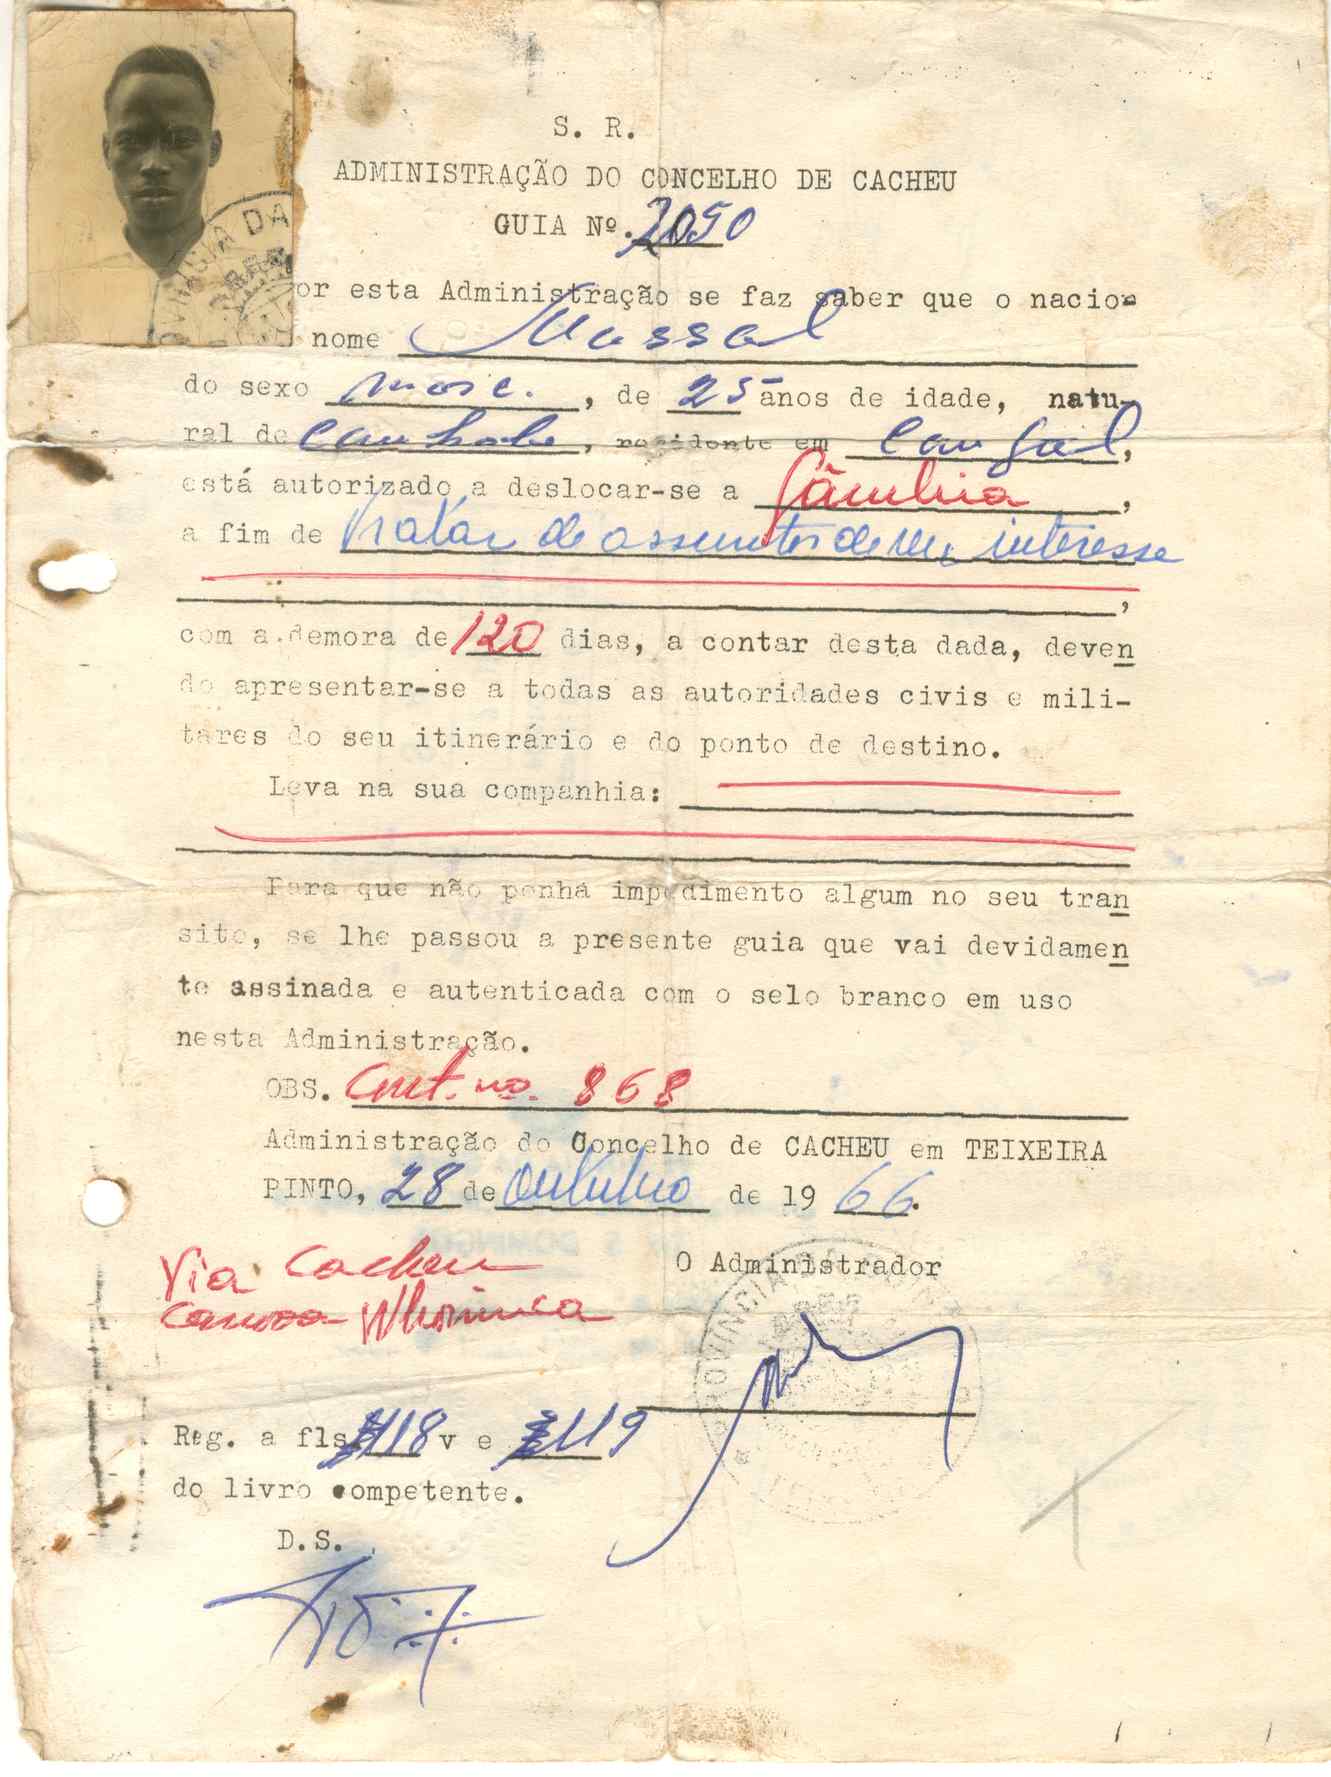 S. R.
ADMINISTRAÇÃO DO CONCELHO DE CACHEU
GUIA Nº. 2050
or esta Administração se faz saber que o nacio-
nome Mussal
do sexo masc., de 25 anos de idade, natu-
ral de, residente em
está autorizado a deslocar-se a Gâmbia,
a fim de tratar de assuntos de seu interesse
,
com a demora de 120 dias, a contar desta dada, deven
do apresentar-se a todas as autoridades civis e mili-
tares do seu itinerário e do ponto de destino.
Leva na sua companhia:
Para que não ponha impedimento algum no seu tran
sito, se lhe passou a presente guia que vai devidamen
te assinada e autenticada com o selo branco em uso
nesta Administração.
OBS. no. 868
Administração do Concelho de CACHEU em TEIXEIRA
PINTO, 28 de outubro de 1966.
Via Cacheu
canoa
O Administrador
PROVINCIA DA
Reg. a fls. 118 v e 119
do livro competente.
D.S.